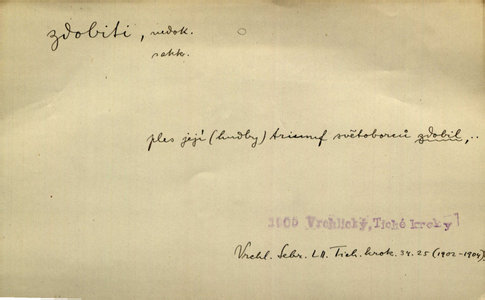 zdobiti, nedok.
ples její (hudby) triumf světoborců zdobil,..
1900 Vrchlický, Tiché kroky
Vrchl. Sebr. LII. Tich. krok. 34. 25 (1902-1904)